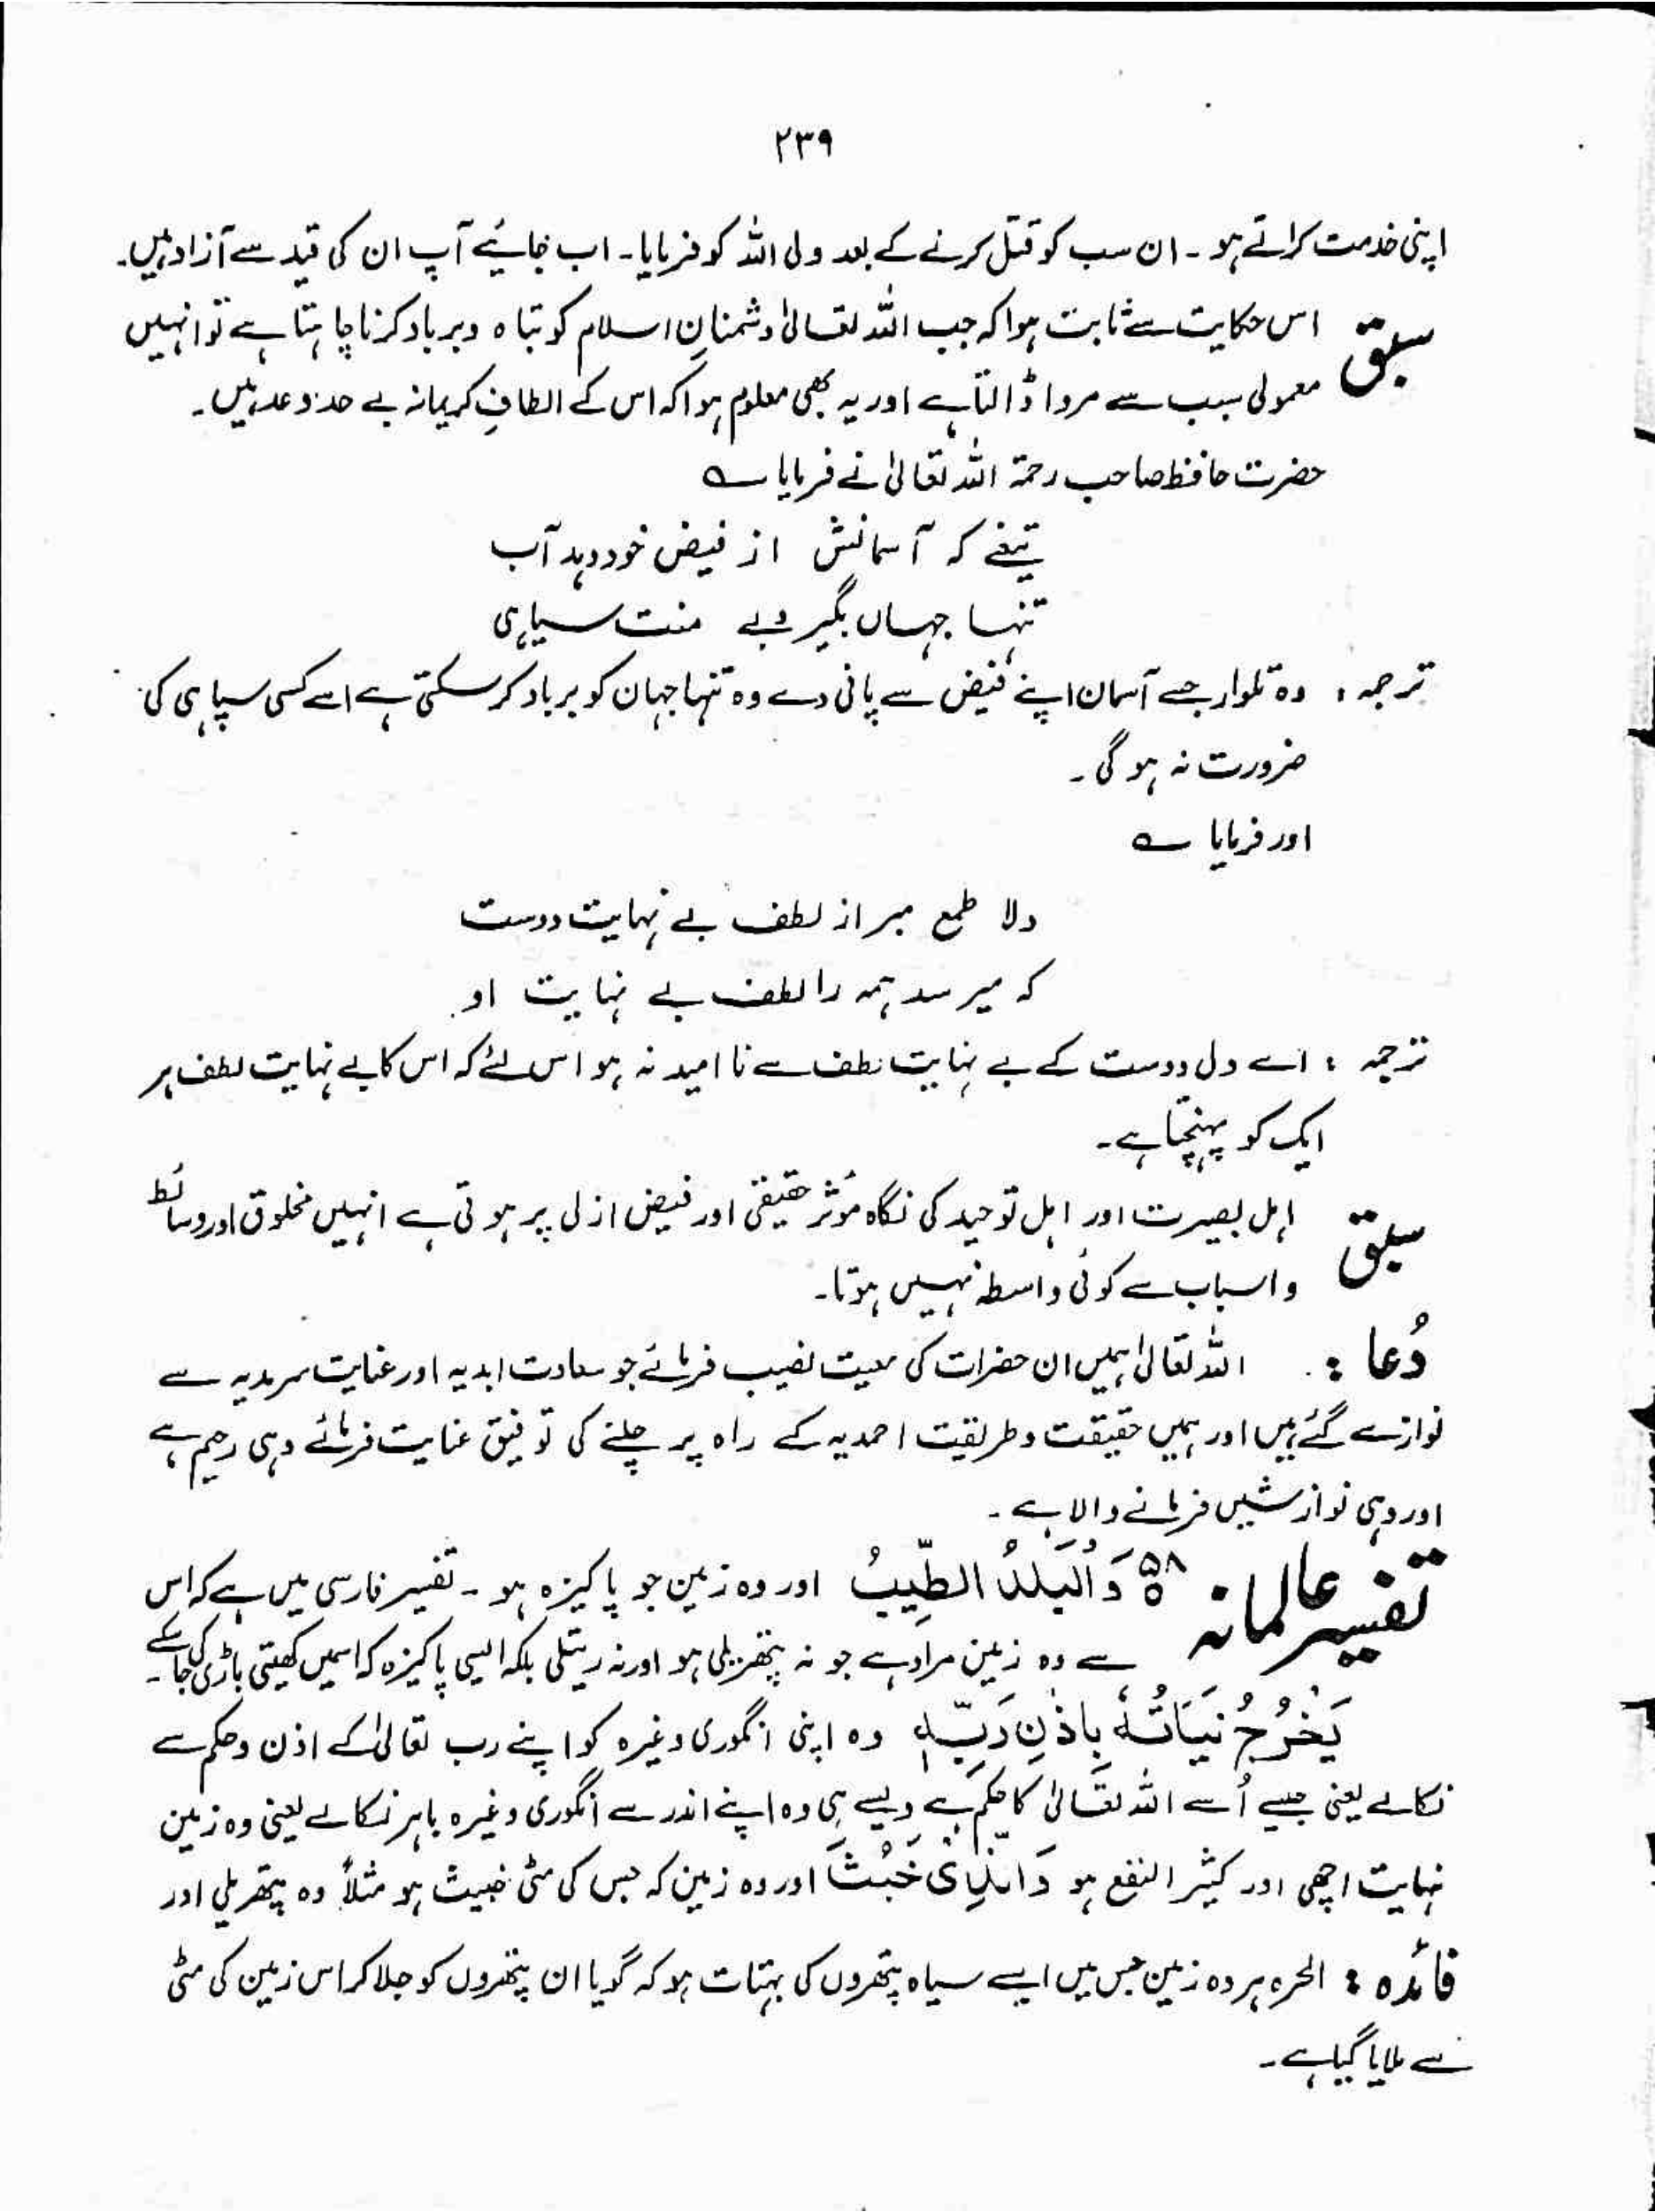 ۲۳۹
اپنی خدمت کراتے ہو۔ ان سب کو قتل کرنے کے بعد ولی اللہ کو فرمایا۔ اب جائیے آپ ان کی قید سے آزاد ہیں۔
سبق اس حکایت سے ثابت ہوا کہ جب اللہ تعالیٰ دشمنانِ اسلام کو تباہ و برباد کرنا چاہتا ہے تو انہیں
معمولی سبب سے مروا ڈالتا ہے اور یہ بھی معلوم ہوا کہ اس کے الطافِ کریمانہ بے حد و عد ہیں۔
حضرت حافظ صاحب رحمۃ اللہ تعالیٰ نے فرمایا ؎
تیغے کہ آسمانش از فیض خود دہد آب
تنہا جہاں بگیرد بے منت سپاہی
ترجمہ : وہ تلوار جسے آسمان اپنے فیض سے پانی دے وہ تنہا جہان کو برباد کر سکتی ہے اسے کسی سپاہی کی
ضرورت نہ ہو گی۔
اور فرمایا ؎
دلا طمع مبر از لطف بے نہایت دوست
کہ میرسد ہمہ را لطف بے نہایت او
ترجمہ : اے دل دوست کے بے نہایت لطف سے نا امید نہ ہو اس لئے کہ اس کا بے نہایت لطف ہر
ایک کو پہنچتا ہے۔
سبق اہل بصیرت اور اہل توحید کی نگاہ مؤثر حقیقی اور فیض ازلی پر ہوتی ہے انہیں مخلوق اور وسائط
و اسباب سے کوئی واسطہ نہیں ہوتا۔
دُعا : اللہ تعالیٰ ہمیں ان حضرات کی معیت نصیب فرمائے جو سعادت ابدیہ اور عنایت سرمدیہ سے
نوازے گئے ہیں اور ہمیں حقیقت و طریقت احمدیہ کے راہ پر چلنے کی توفیق عنایت فرمائے وہی رحیم ہے
اور وہی نوازشیں فرمانے والا ہے۔
تفسیر عالمانہ ۵۸ وَالْبَلَدُ الطَّيِّبُ اور وہ زمین جو پاکیزہ ہو۔ تفسیر فارسی میں ہے کہ اس
سے وہ زمین مراد ہے جو نہ پتھریلی ہو اور نہ ریتلی بلکہ ایسی پاکیزہ کہ اسمیں کھیتی باڑی کی جا سکے۔
يَخْرُجُ نَبَاتُهٗ بِاِذْنِ رَبِّهٖ وہ اپنی انگوری وغیرہ کو اپنے رب تعالیٰ کے اذن و حکم سے
نکالے یعنی جیسے اُسے اللہ تعالیٰ کا حکم ہے ویسے ہی وہ اپنے اندر سے انگوری وغیرہ باہر نکالے یعنی وہ زمین
نہایت اچھی اور کثیر النفع ہو وَالَّذِیْ خَبُثَ اور وہ زمین کہ جس کی مٹی خبیث ہو مثلاً وہ پتھریلی اور
فائدہ : الحرہ ہر وہ زمین جس میں ایسے سیاہ پتھروں کی بہتات ہو کہ گویا ان پتھروں کو جلا کر اس زمین کی مٹی
سے ملایا گیا ہے۔